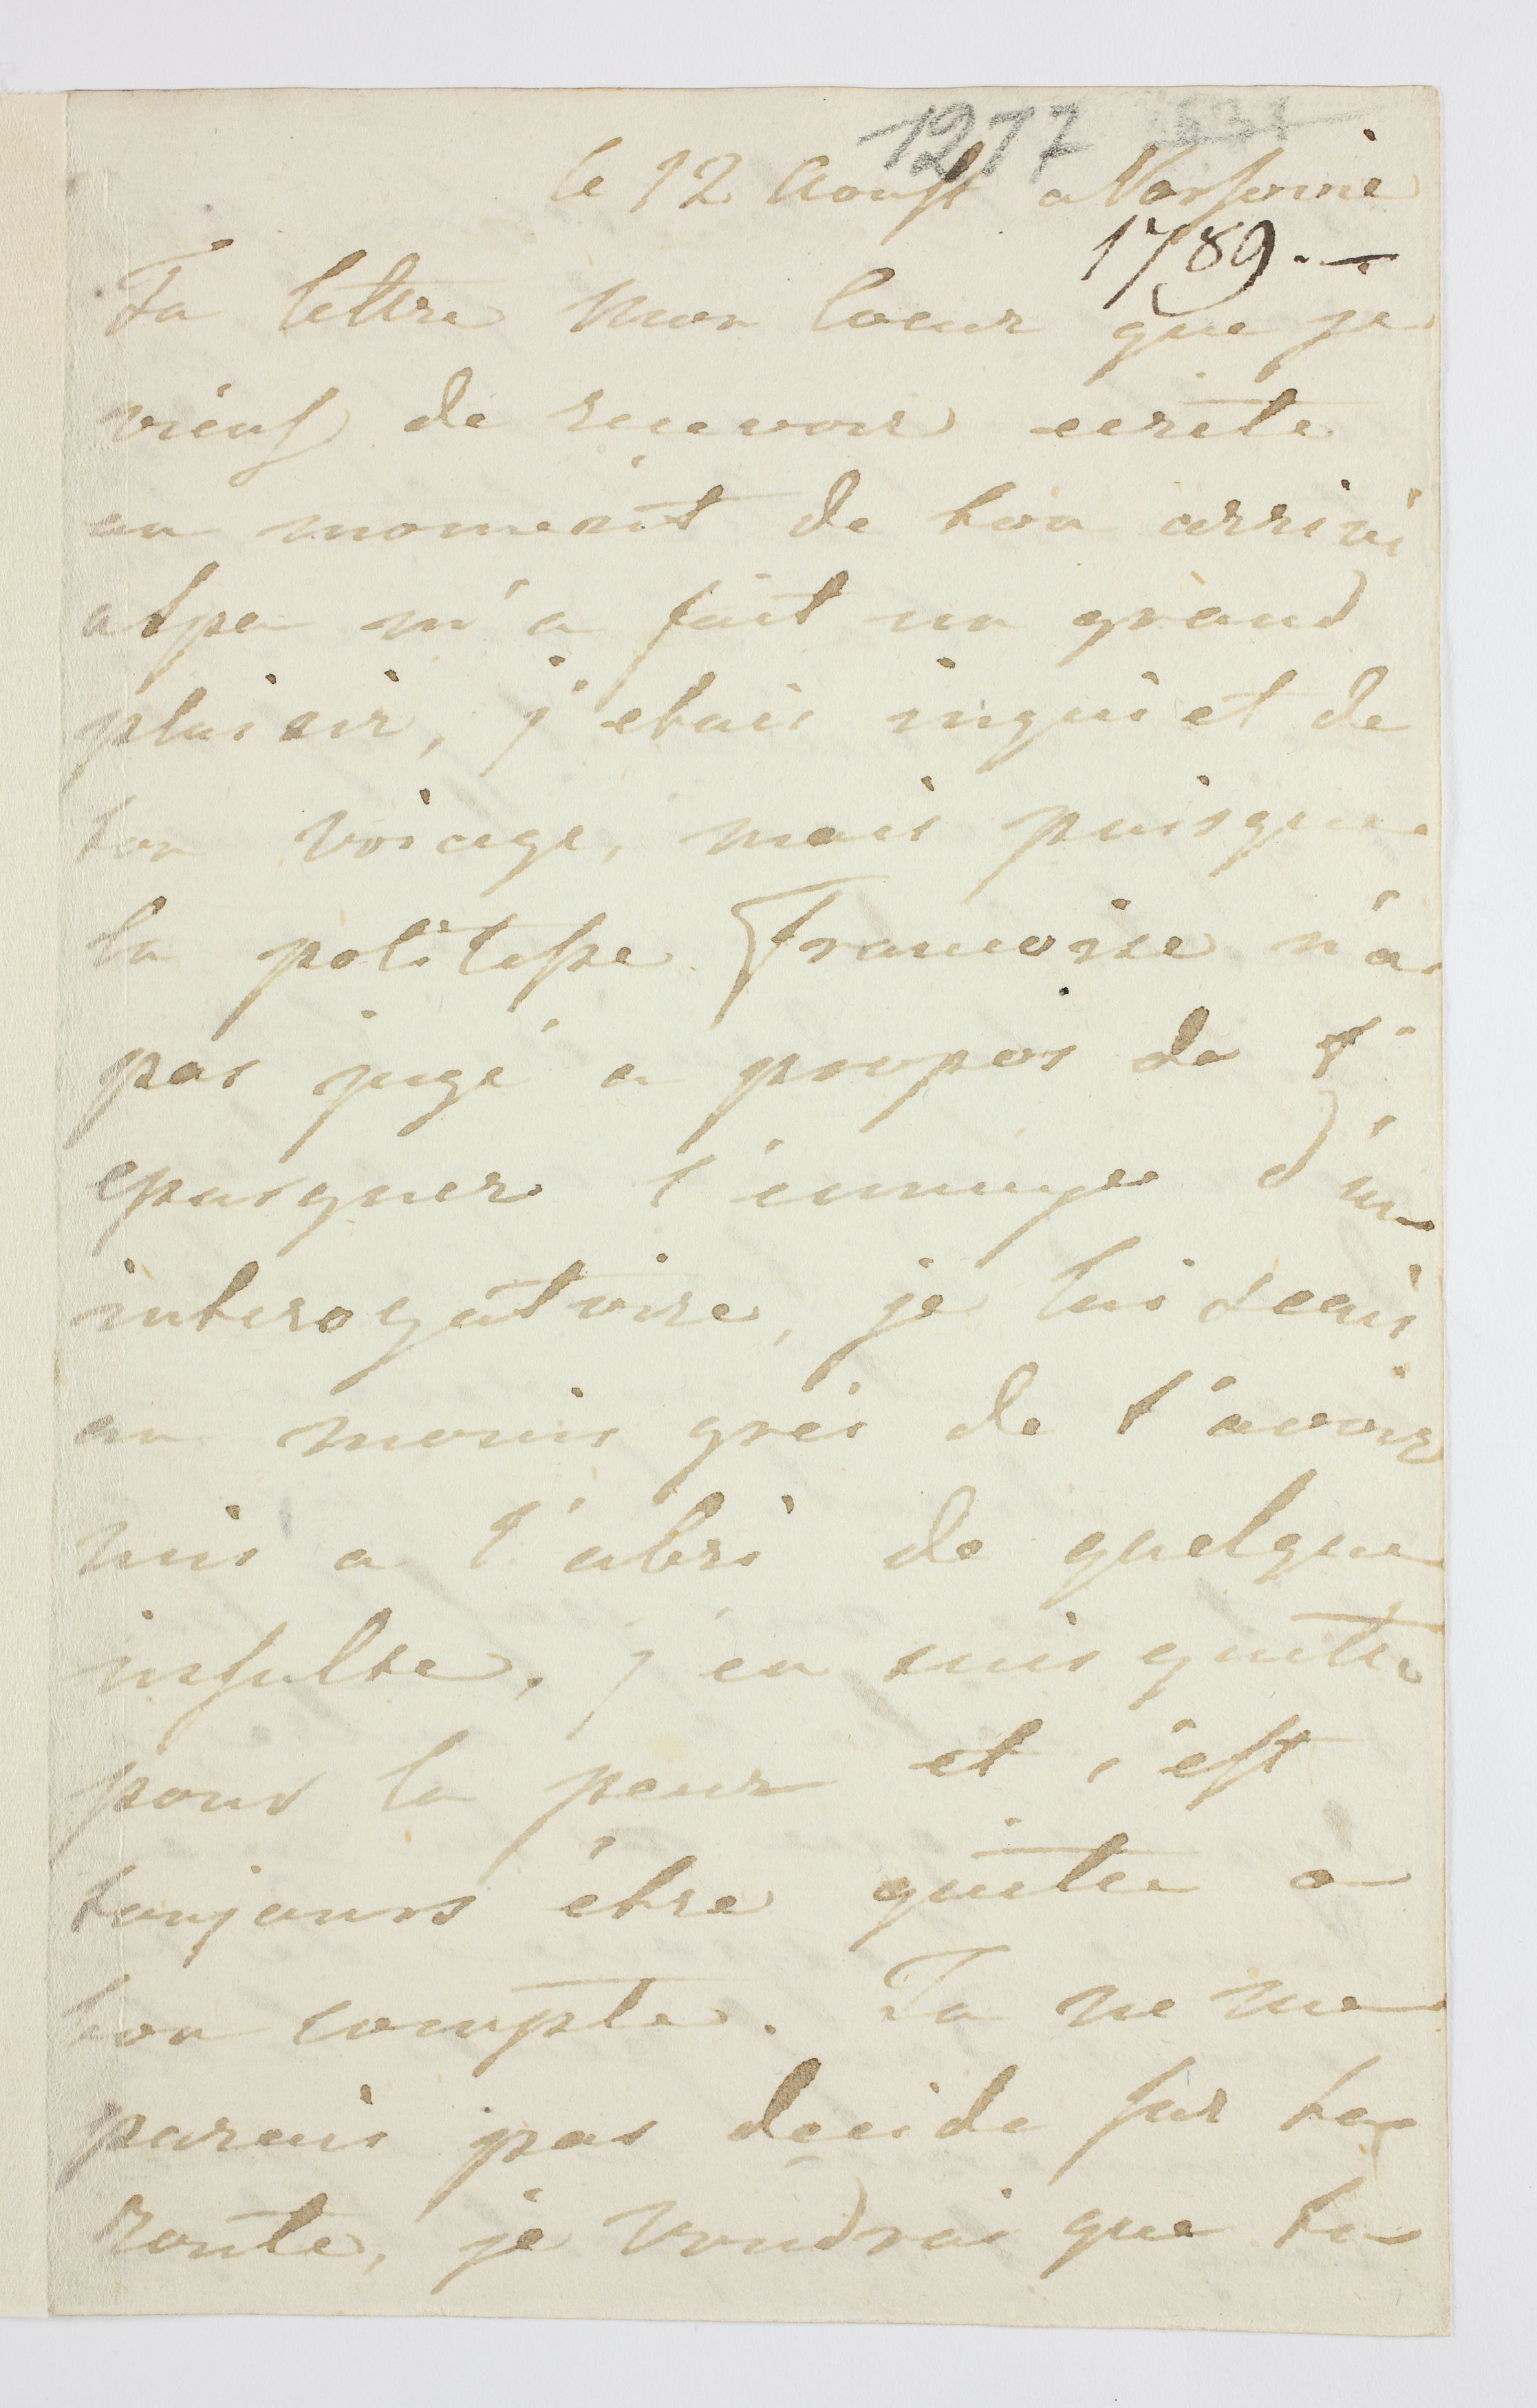 1277
le 12 Aoust a Varsovie
1789. —
Ta lettre mon Coeur que je
viens de recevoir ecrite
au moment de ton arrivé
a Spa m'a fait un grand
plaisir, j'etais inquiet de
ton voiage, mais puisque
la politesse Francoise n'a
pas jugé a propos de t'
epargner l'ennuye d'un
interogatoire, je lui scais
au moins grés de t'avoir
mis a l'abri de quelque
insulte. j'en suis quitte
pour la peur et c'est
toujours être quitte a
bon compte. Tu ne me
parais pas decide sur ta
route, je voudrai que tu